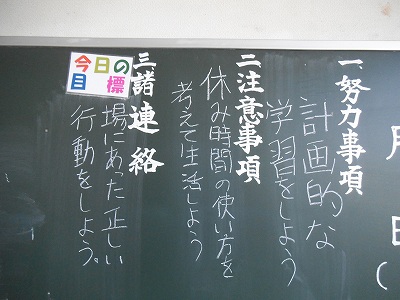 一、努力事項
計画的な
学習をしよう
二、注意事項
休み時間の使い方を
考えて生活しよう
三、諸連絡
今日の
目標
場にあった正しい
行動をしよう。
月
日
(